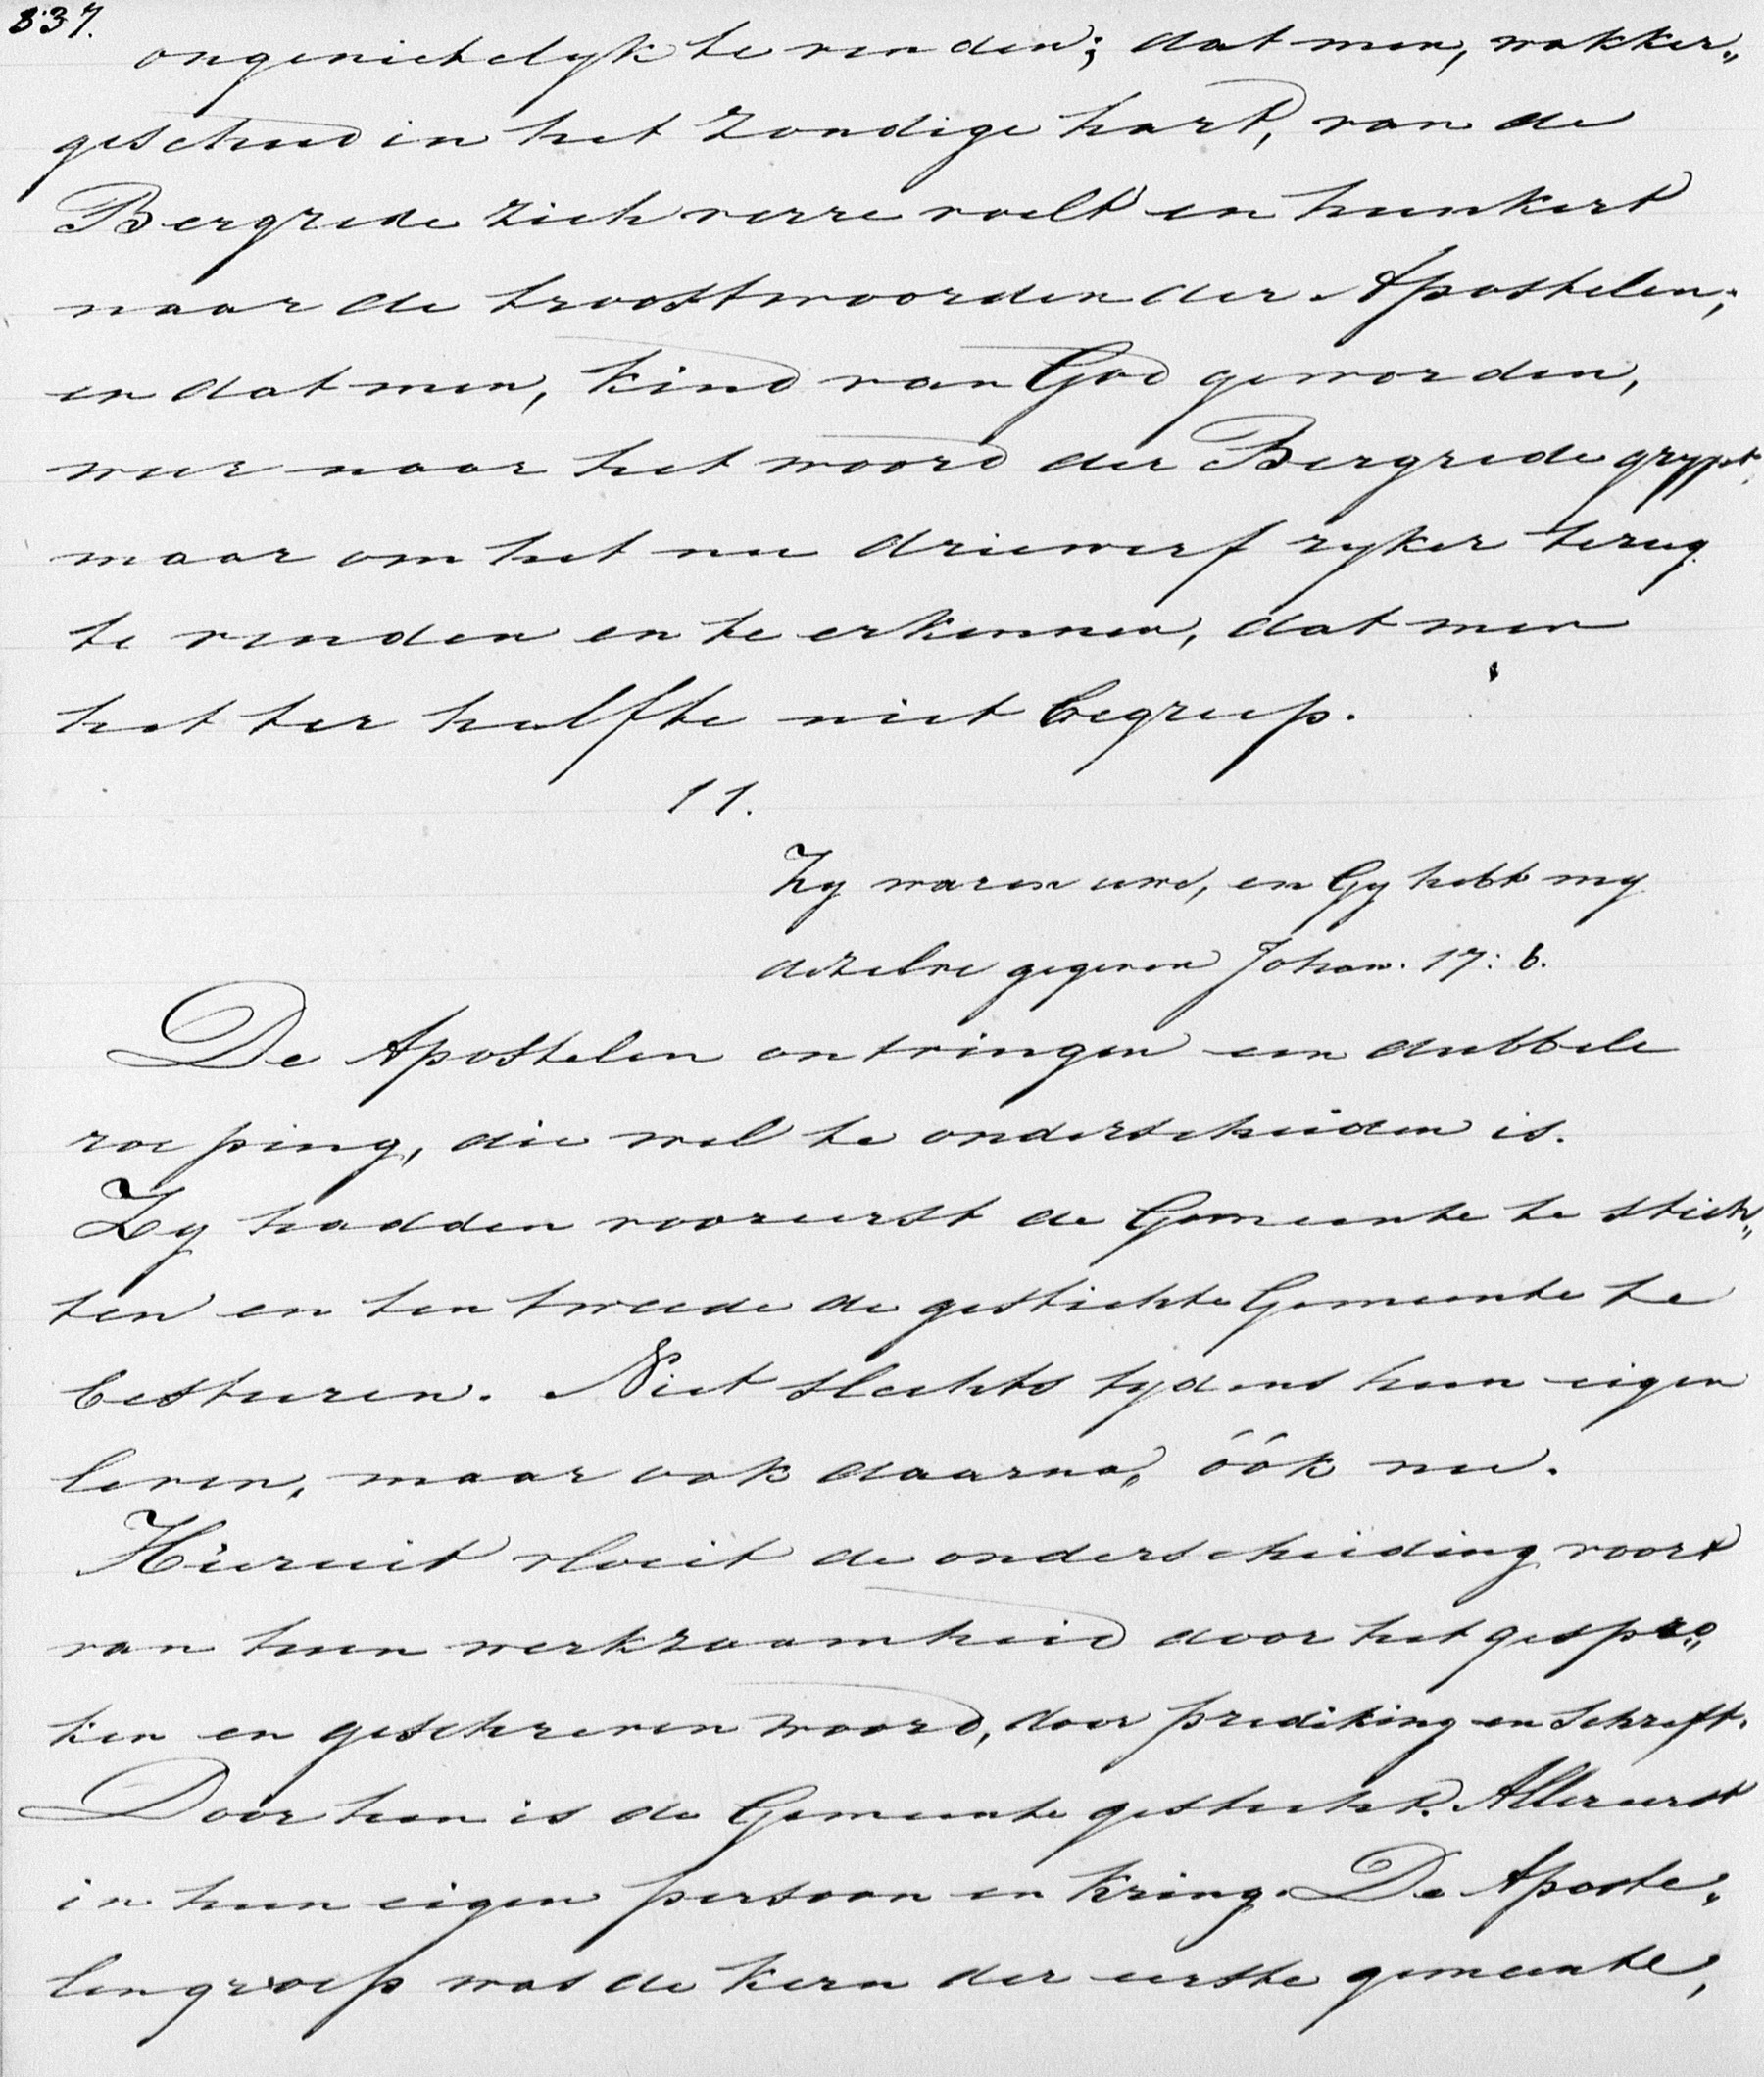 837.
ongenietelyk te vinden; dat men, wakker„
geschud in het zondige hart, van de
Bergrede zich verre voelt en hunkert
naar de troostwoorden der Apostelen;
en dat men, kind van God geworden,
weer naar het woord der Bergrede grypt,
maar om het nu driewerf ryker terug
te vinden en te erkennen, dat men
het ter helfte niet begreep.
11.
Zy waren uwe, en Gy hebt my
dezelve gegeven Johan. 17: 6.
De Apostelen ontvingen een dubbele
roeping, die wel te onderscheiden is.
Zy hadden vooreerst de Gemeente te stich„
ten en ten tweede de gestichte Gemeente te
besturen. Niet slechts tydens hun eigen
leven, maar ook daarna, óók nu.
Hieruit vloeit de onderscheiding voort
van hun werkzaamheid door het gespro„
ken en geschreven woord, door prediking en schrift.
Door hen is de Gemeente gesticht. Allereerst
in hun eigen persoon en kring. De Aposte„
lengroep was de kern der eerste gemeente,